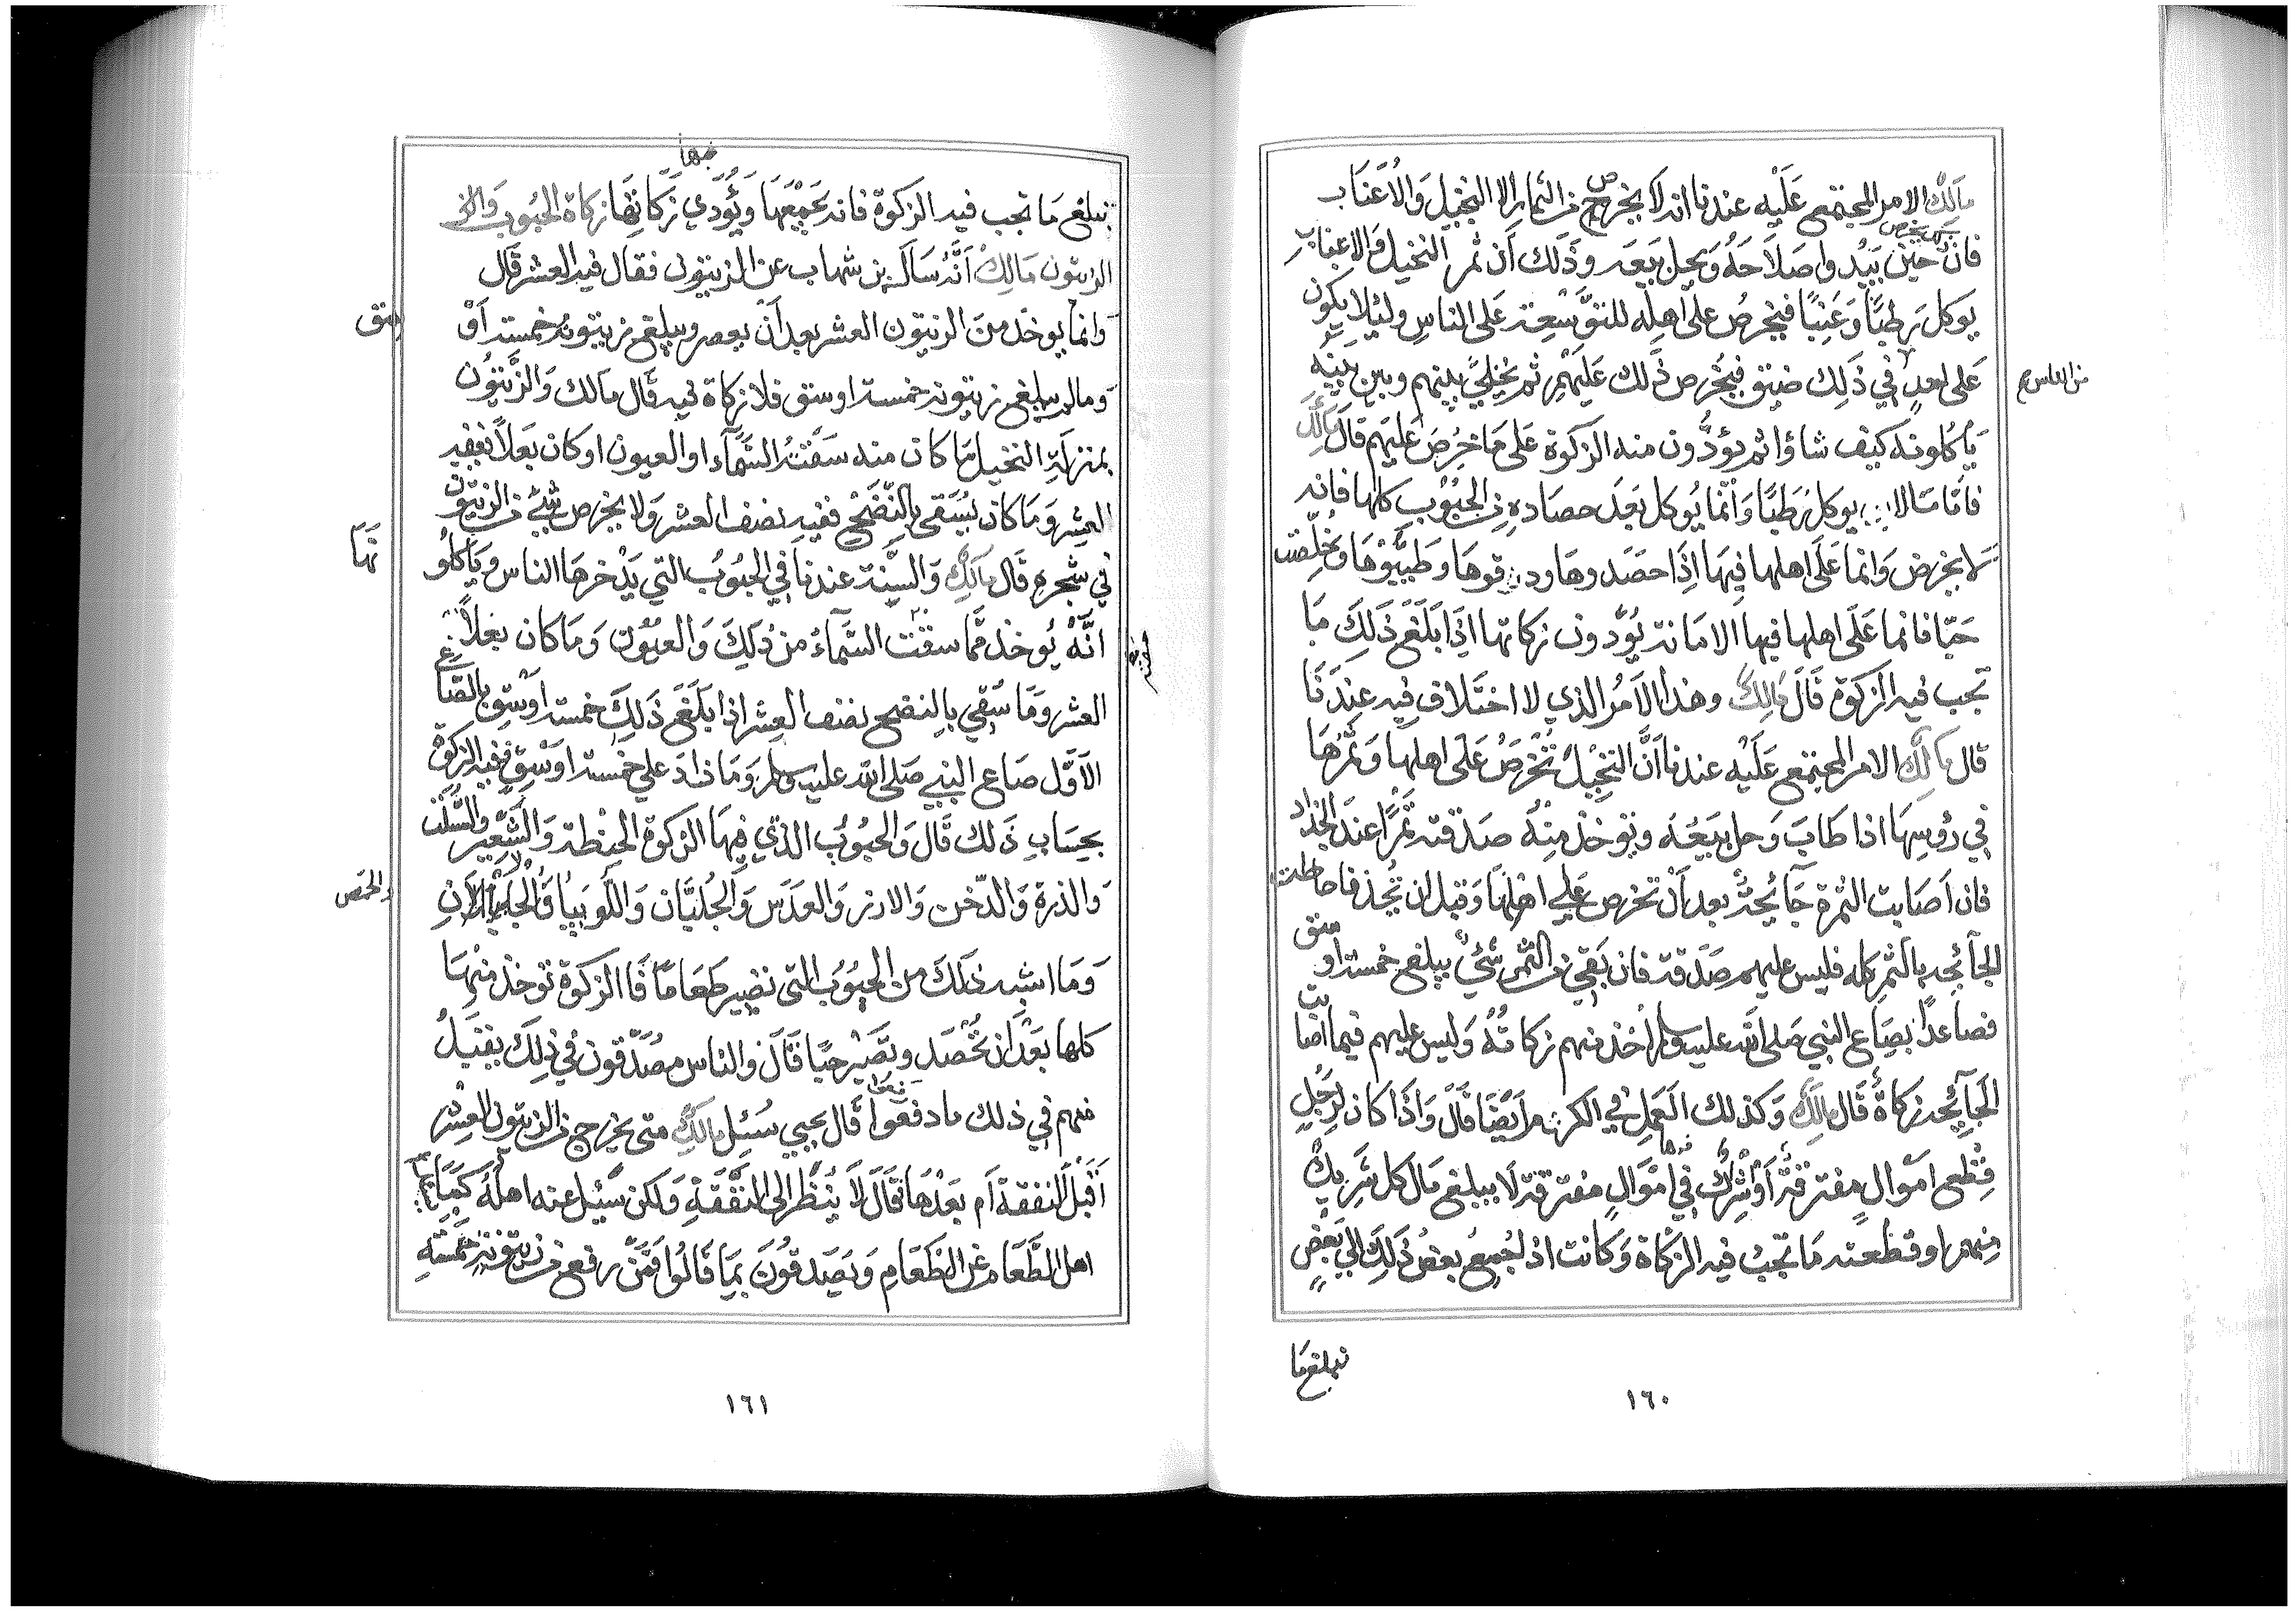 مَالِك الامر المجتمع عَلَيْه عندنا انه لاَ يخرص من الثمار الا النخيل وَالأعنَاب
فان ذلك يخرص حين يَبْدُوا صَلاَحَهُ وَيحِل بيَعَه وَذَلك أن ثمر النخيل وَالاعناب
يوكل رَطبًا وَعَنِبًا فيخرصُ على اهله للتوَّسِعة عَلى الناس ولئلا يكون
عَلى احدٍ في ذَلِك ضيق فيخرص ذلك عَليَهْم ثم يُخَلِّي بينهم وبين بينه
من الناس
يَأكلونه كيف شاؤا ثم يؤدُّون منه الزكوة عَلى مَا خرصَ عَليَهم قالَ مَالِك
فَأمَّا مَا لا يوكل رَطَبًا وَانمّا يُوكل بَعدَ حصَاده من الحبُوب كلها فانه
لاَ يخرص وَانما عَلَى اهلها فِيهَا اِذَا حَصَدوهَا ودقوهَا وطَيَّبوْهَا وخلصت
حَبّا فانما عَلَى اهلها فيها الامَانة يؤدّون زكاتها اذَا بَلَغ ذَلِكَ مَا
تجب فيه الزكوة قَالَ مَالِكُ وهذا الاَمْر الذي لا اختَلاف فيه عِنْدَنَا
قال مَالِكُ الامر المجتمع عَلَيْه عندنا أَنَّ النخِيْلَ تخْرَصُ عَلَى اهلها وَثمرُهَا
في رؤسِهَا اذا طابَ وَحل بيعُه وتوخذ منِهُ صدقته تمرًا عند الجذاد
فان اَصَابت الثمرة جَآئِحةُ بعد أن تخرص عَلي اهْلهَا وَقبل ان تُجذ فاحاطت
الجَآئِحِه بالثمر كله فليس عليهم صَدقة فان بَقي من الثمر شَيُ يبلغ خمسة اوسق
فصَاعدًا بصَاع النبي صَلى الله عليه وسلم أخذ منهم زكاتُهُ وَليس عليهم فيما اصابت
الجَآئِحة زكاةُ قَال مالِكُ وَكذلك العَمل في الكرم اَيْضًا قَالَ وَاذَا كان لِرَجُلٍ
قِطَع اموَالِ مفترقةُ أوْ شِرْكُ في امْوَالِ مفترقة لاَ يبلغ مَال كل شَريكٍ
مِنهمر او قطعته مَا تجبُ فيه الزكاة وَكانت اذ جُمِعَ بعضُ ذَلِكَ اِلي بَعضٍ
فبلغ مَا
١٦٠
تبلغ مَا تجب فيه الزكوة فانه يجمعَهَا وَيُؤدي زكاتَهَا زكاة الحبُوب وَ
الزيتون مَالِكُ أنَّهُ سَالَ بن شهاب عن الزيتون فقال فيه العشر قَال
وانما يوخذ منَ الزيتون العشر بعد اَنْ يعصر ويبلغ زيتونهُ خمسة أوْ
سق
وَمالم يبلغ زيتونه خمسة اوسق فلا زكاة فيه قَال مَالك وَالزَّيتُون
بمنزلَةِ النخيل مَا كان منه سَقَتْهُ السَّمَآء او العيون او كان بَعَلاً ففيه
العشر وَمَا كان يُسْقَى بالنَّضح ففيه نصف العشر وَلا يخرص شَيْئُ من الزيتون
في شجره قَال مَالِكُ وَالسُّنة عندنا في الحبُوب التي يدْخرهَا الناس وَيَأكلُو
نهَا
انَّهْ يُوخذ ممّا سقت السَّمَآءُ من ذَلِكَ وَالعيُون وَمَا كان بعَلاً
العشر وَمَا سُقي بالنضح نصف العشر اذا بَلَغَ ذَلِكَ خمسة اوسُق بالصَّاع
الأوَّل صَاع النبي صَلى الله عليه وسلم وَمَا زادَ علي خمسة اوسُق ففيه الزكوة
بحِسَابِ ذَلك قَال وَالحبُوب الذَّي فِيهَا الزكوة الحِنْطة وَالشَّعِيْر وَالسُّلت
وَالذرة وَالدّخن وَالارز وَالعَدَس وَالجُلبَّان وَاللُّوبِيا وَالجُلجُلاَن
والحمّص
وَمَا اشبه ذَلكَ من الحبُوُب التي تصِير طَعَامًا فَا الزكوة توخذ منِهَا
كلها بَعْدَ ان تحْصَد وتصَيْر حبًا قَالَ وَالناس مصُدَّقون في ذَلِكَ يقبَلُ
منهم في ذلك ما دفعوا قَال يحيي سُئِل مَالِكُ متى يخرج من الزيتون العشر
أقَبْلَ النفقةَ أم بعَدْهَا فَقَالَ لاَ ينُظر الى النَّفقة وَلكن يسُئِل عنه اهلُهُ كَمَا يُسْئل
اهل الطَّعَام عن الطَّعَامِ وَيصَدقوُنَ بمَا قَالُوا فَمَنْ رفع من زيتونه خمسَةِ
١٦١